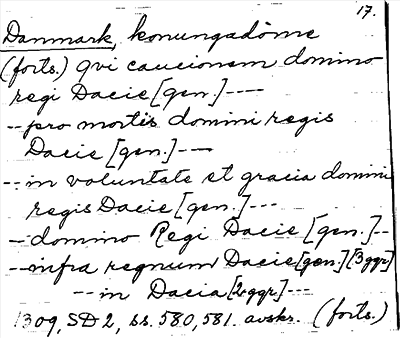 17.
Danmark, konungadöme
(forts.) qvi caucionem domino
regi Dacie [gen.] ----
-- pro mortis domini regis
Dacie [gen.] ---
-- in voluntate et gracia domini
regis Dacie [gen.] ---
-- domino Regi Dacie [gen.] --
-- infra regnum Dacie [gen.] [3ggr]
-- in Dacia [2ggr] ---
1309, SD 2, ss. 580, 581. avskr. (forts.)